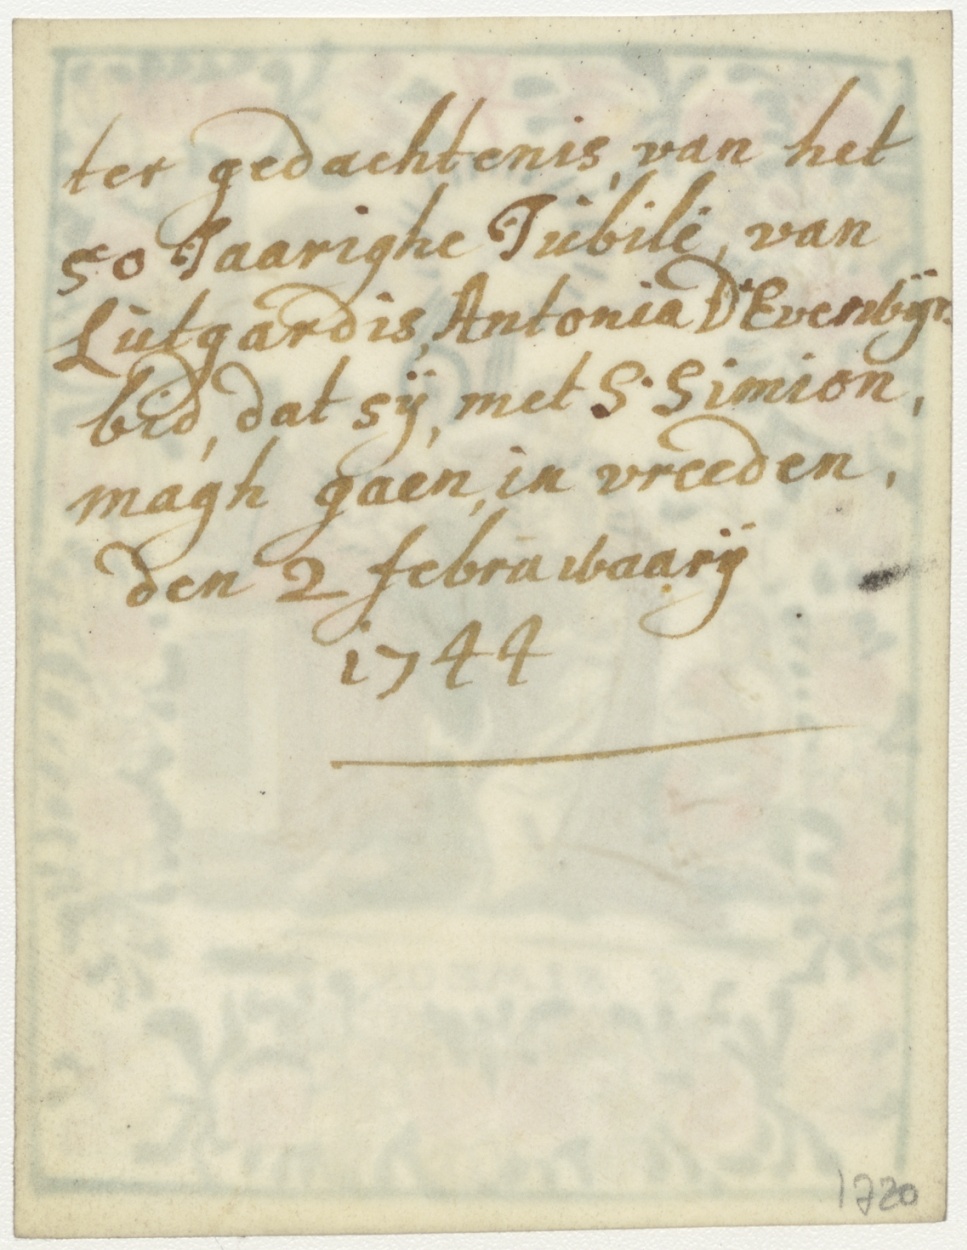 ter gedachtenis, van het
50 Jaarighe Jubilé, van
Lutgardis, Antonia D'Everwijn.
bid, dat sij, met S. Simion,
magh gaen, in vreeden,
den 2 februwaarij
1744
1720